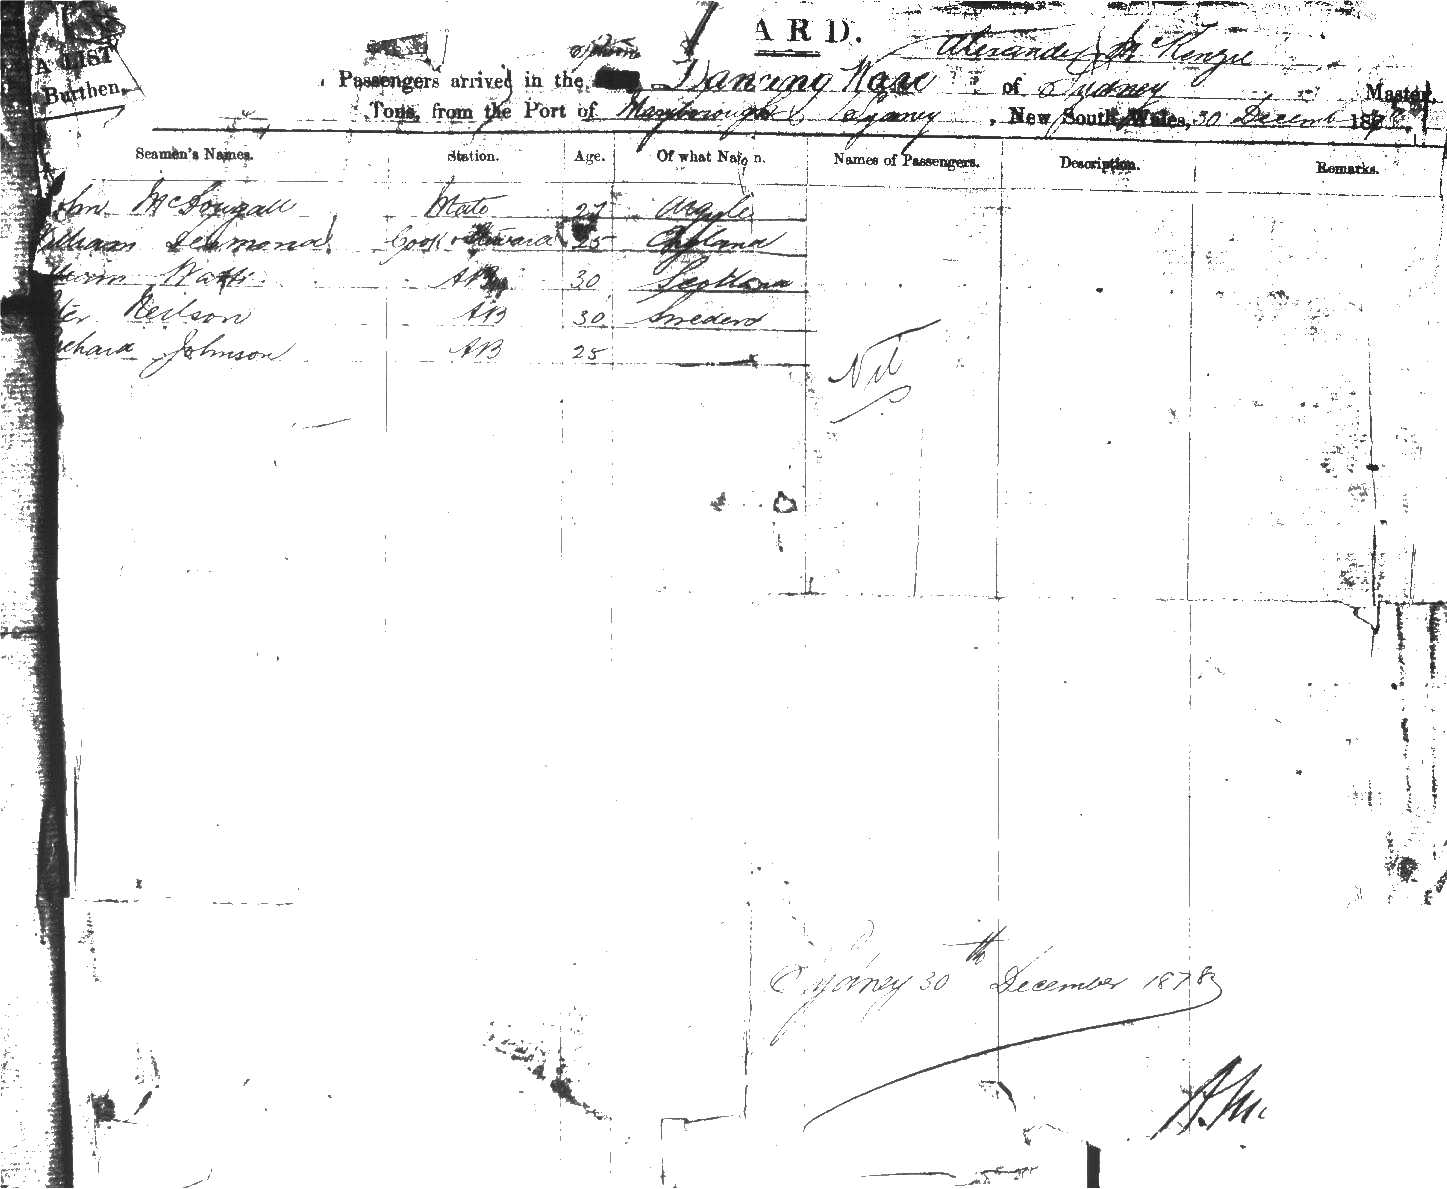 ARD.
A LIST
Burthen,
Alexander McKenzie
Passengers arrived in the Dancing Wave of Sydney Master,
Tons, from the Port of Maryborough Sydney, New South Wales, 30 Decemb 1878
Seamen's Names. Station. Age. Of what Nation. Names of Passengers. Description. Remarks.
McDougall Mate 27 Argyle
William Desmond Cook & Steward 25 England
Watts AB 30 Scotland
Neilson AB 30 Sweden
Johnson AB 25
Nil
Sydney 30th December 1878